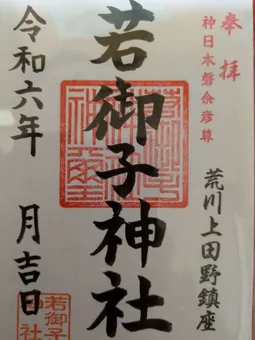 奉拝
神日本磐余彦尊
荒川上田野鎮座
若御子神社
令和六年 月吉日